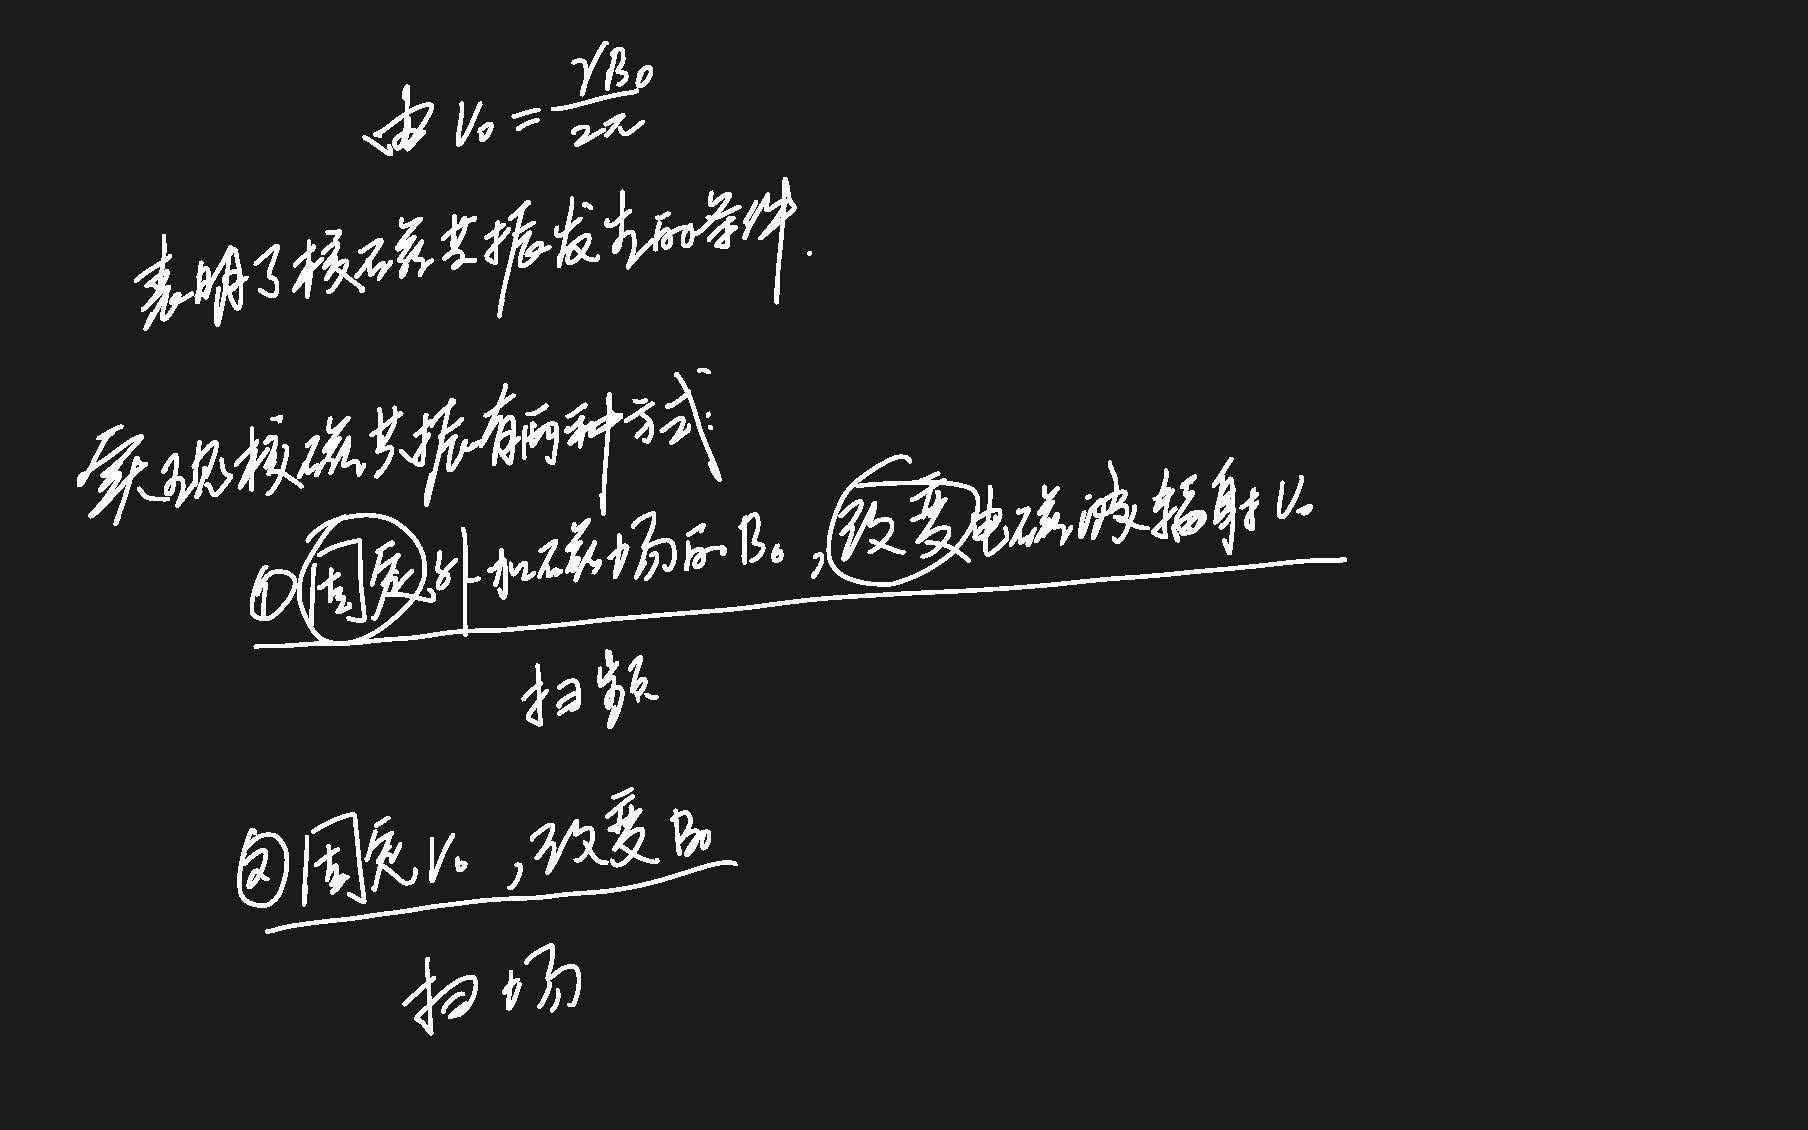 由 ν₀ = γB₀/2π
表明了核磁共振发生的条件.
实现核磁共振有两种方式:
①固定外加磁场的B₀,改变电磁波辐射ν₀
扫频
②固定ν₀,改变B₀
扫场